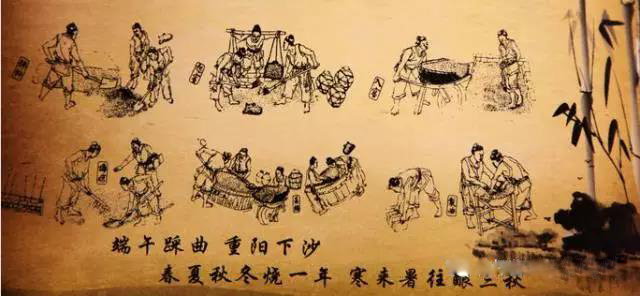 端午踩曲 重阳下沙
春夏秋冬烧一年 寒来暑往酿三秋